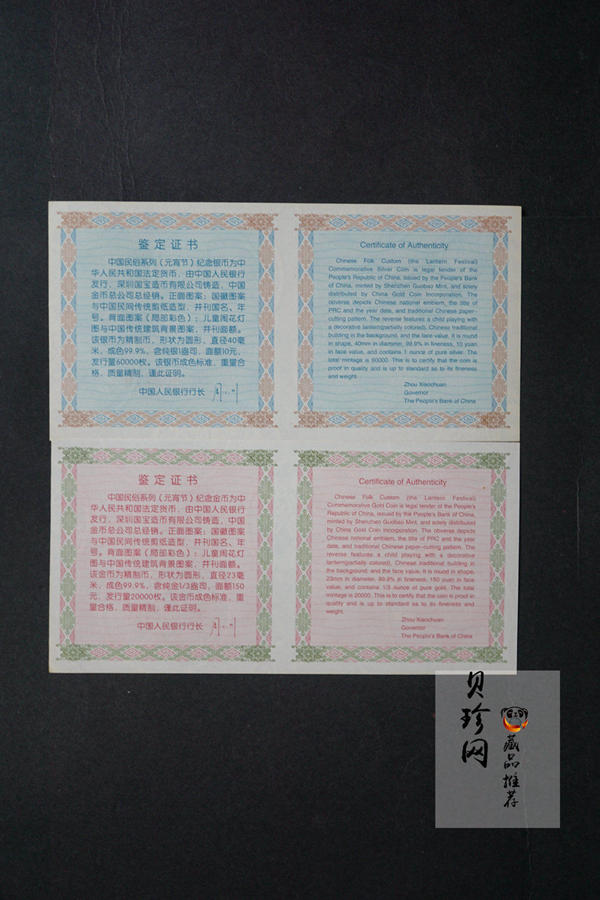 鉴定证书
中国民俗系列（元宵节）纪念银币为中
华人民共和国法定货币，由中国人民银行
发行，深圳国宝造币有限公司铸造，中国
金币总公司总经销。正面图案：国徽图案
与中国民间传统剪纸造型，并刊国名、年
号。背面图案（局部彩色）：儿童闹花灯
图与中国传统建筑背景图案，并刊面额。
该银币为精制币，形状为圆形，直径40毫
米，成色99.9%，含纯银1盎司，面额10元，
发行量60000枚。该银币成色标准，重量合
格，质量精制，谨此证明。
中国人民银行行长
Certificate of Authenticity
Chinese Folk Custom (the Lantern Festival)
Commemorative Silver Coin is legal tender of the
People's Republic of China, issued by the People's Bank
of China, minted by Shenzhen Guobao Mint, and solely
distributed by China Gold Coin Incorporation. The
obverse depicts Chinese national emblem, the title of
PRC and the year date, and traditional Chinese paper-
cutting pattern. The reverse features a child playing with
a decorative lantern(partially colored), Chinese traditional
building in the background, and the face value. It is round
in shape, 40mm in diameter, 99.9% in fineness, 10 yuan
in face value, and contains 1 ounce of pure silver. The
total mintage is 60000. This is to certify that the coin is
proof in quality and is up to standard as to its fineness
and weight.
Zhou Xiaochuan
Governor
The People's Bank of China
鉴定证书
中国民俗系列（元宵节）纪念金币为中
华人民共和国法定货币，由中国人民银行
发行，深圳国宝造币有限公司铸造，中国
金币总公司总经销。正面图案：国徽图案
与中国民间传统剪纸造型，并刊国名、年
号。背面图案（局部彩色）：儿童闹花灯
图与中国传统建筑背景图案，并刊面额。
该金币为精制币，形状为圆形，直径23毫
米，成色99.9%，含纯金1/3盎司，面额150
元，发行量20000枚。该金币成色标准，重
量合格，质量精制，谨此证明。
中国人民银行行长
Certificate of Authenticity
Chinese Folk Custom (the Lantern Festival)
Commemorative Gold Coin is legal tender of the People's
Republic of China, issued by the People's Bank of China,
minted by Shenzhen Guobao Mint, and solely distributed
by China Gold Coin Incorporation. The obverse depicts
Chinese national emblem, the title of PRC and the year
date, and traditional Chinese paper-cutting pattern. The
reverse features a child playing with a decorative
lantern(partially colored), Chinese traditional building in
the background, and the face value. It is round in shape,
23mm in diameter, 99.9% in fineness, 150 yuan in face
value, and contains 1/3 ounce of pure gold. The total
mintage is 20000. This is to certify that the coin is proof in
quality and is up to standard as to its fineness and
weight.
Zhou Xiaochuan
Governor
The People's Bank of China
贝珍网
藏品推荐